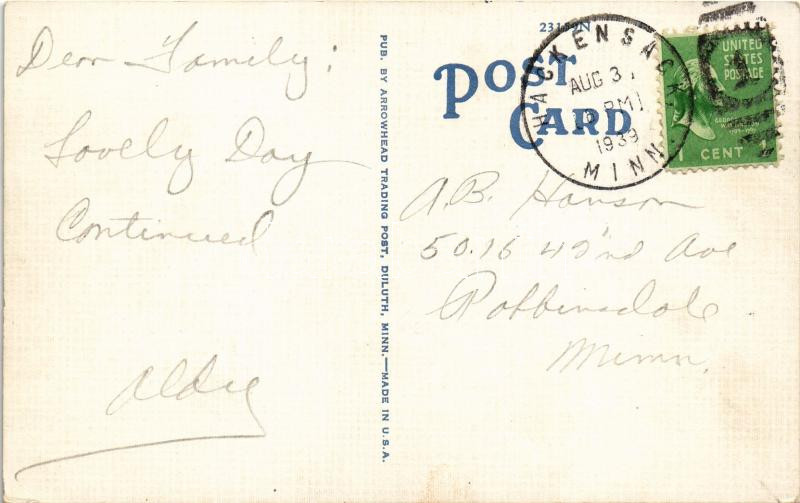 Dear Family;
Lovely Day
Continued
Aldie
PUB. BY ARROWHEAD TRADING POST, DULUTH, MINN.—MADE IN U.S.A.
23159N
POST
CARD
HACKENSACK
AUG 31
PM
1939
MINN.
UNITED
STATES
POSTAGE
1 CENT 1
A.B. Hanson
5016 42nd Ave
Robbinsdale
Minn.